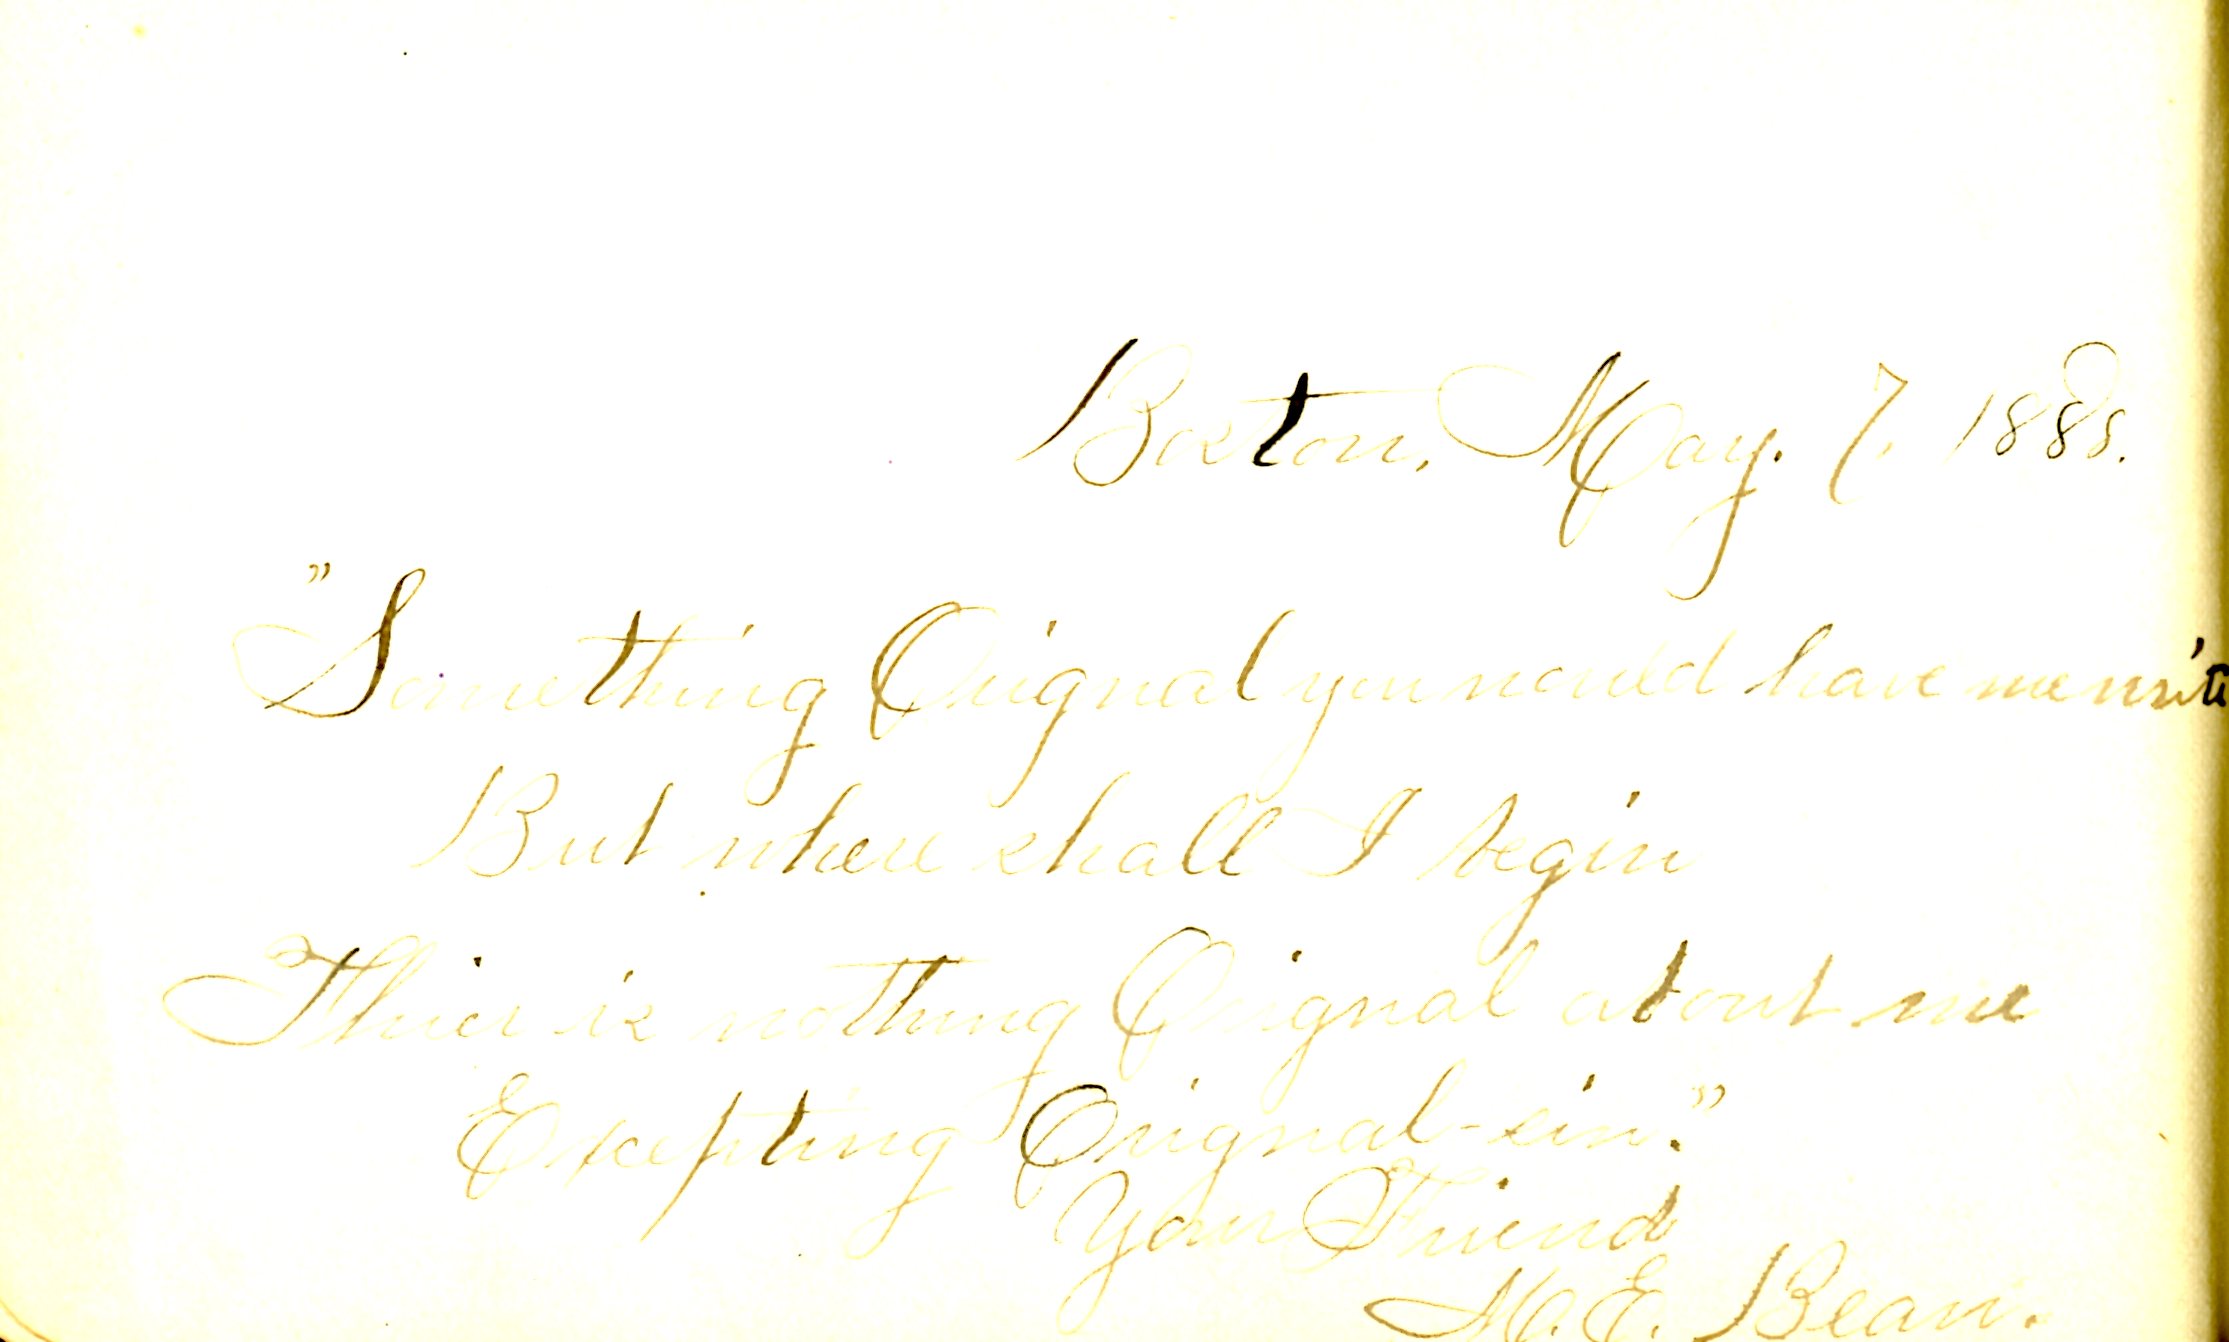 Boston, May. 7. 1888.
"Something Orignal you would have me write
But where shall I begin
Thier is nothing Orignal about me
Excepting Orignal-sin."
Your Friend
M. E. Bean.